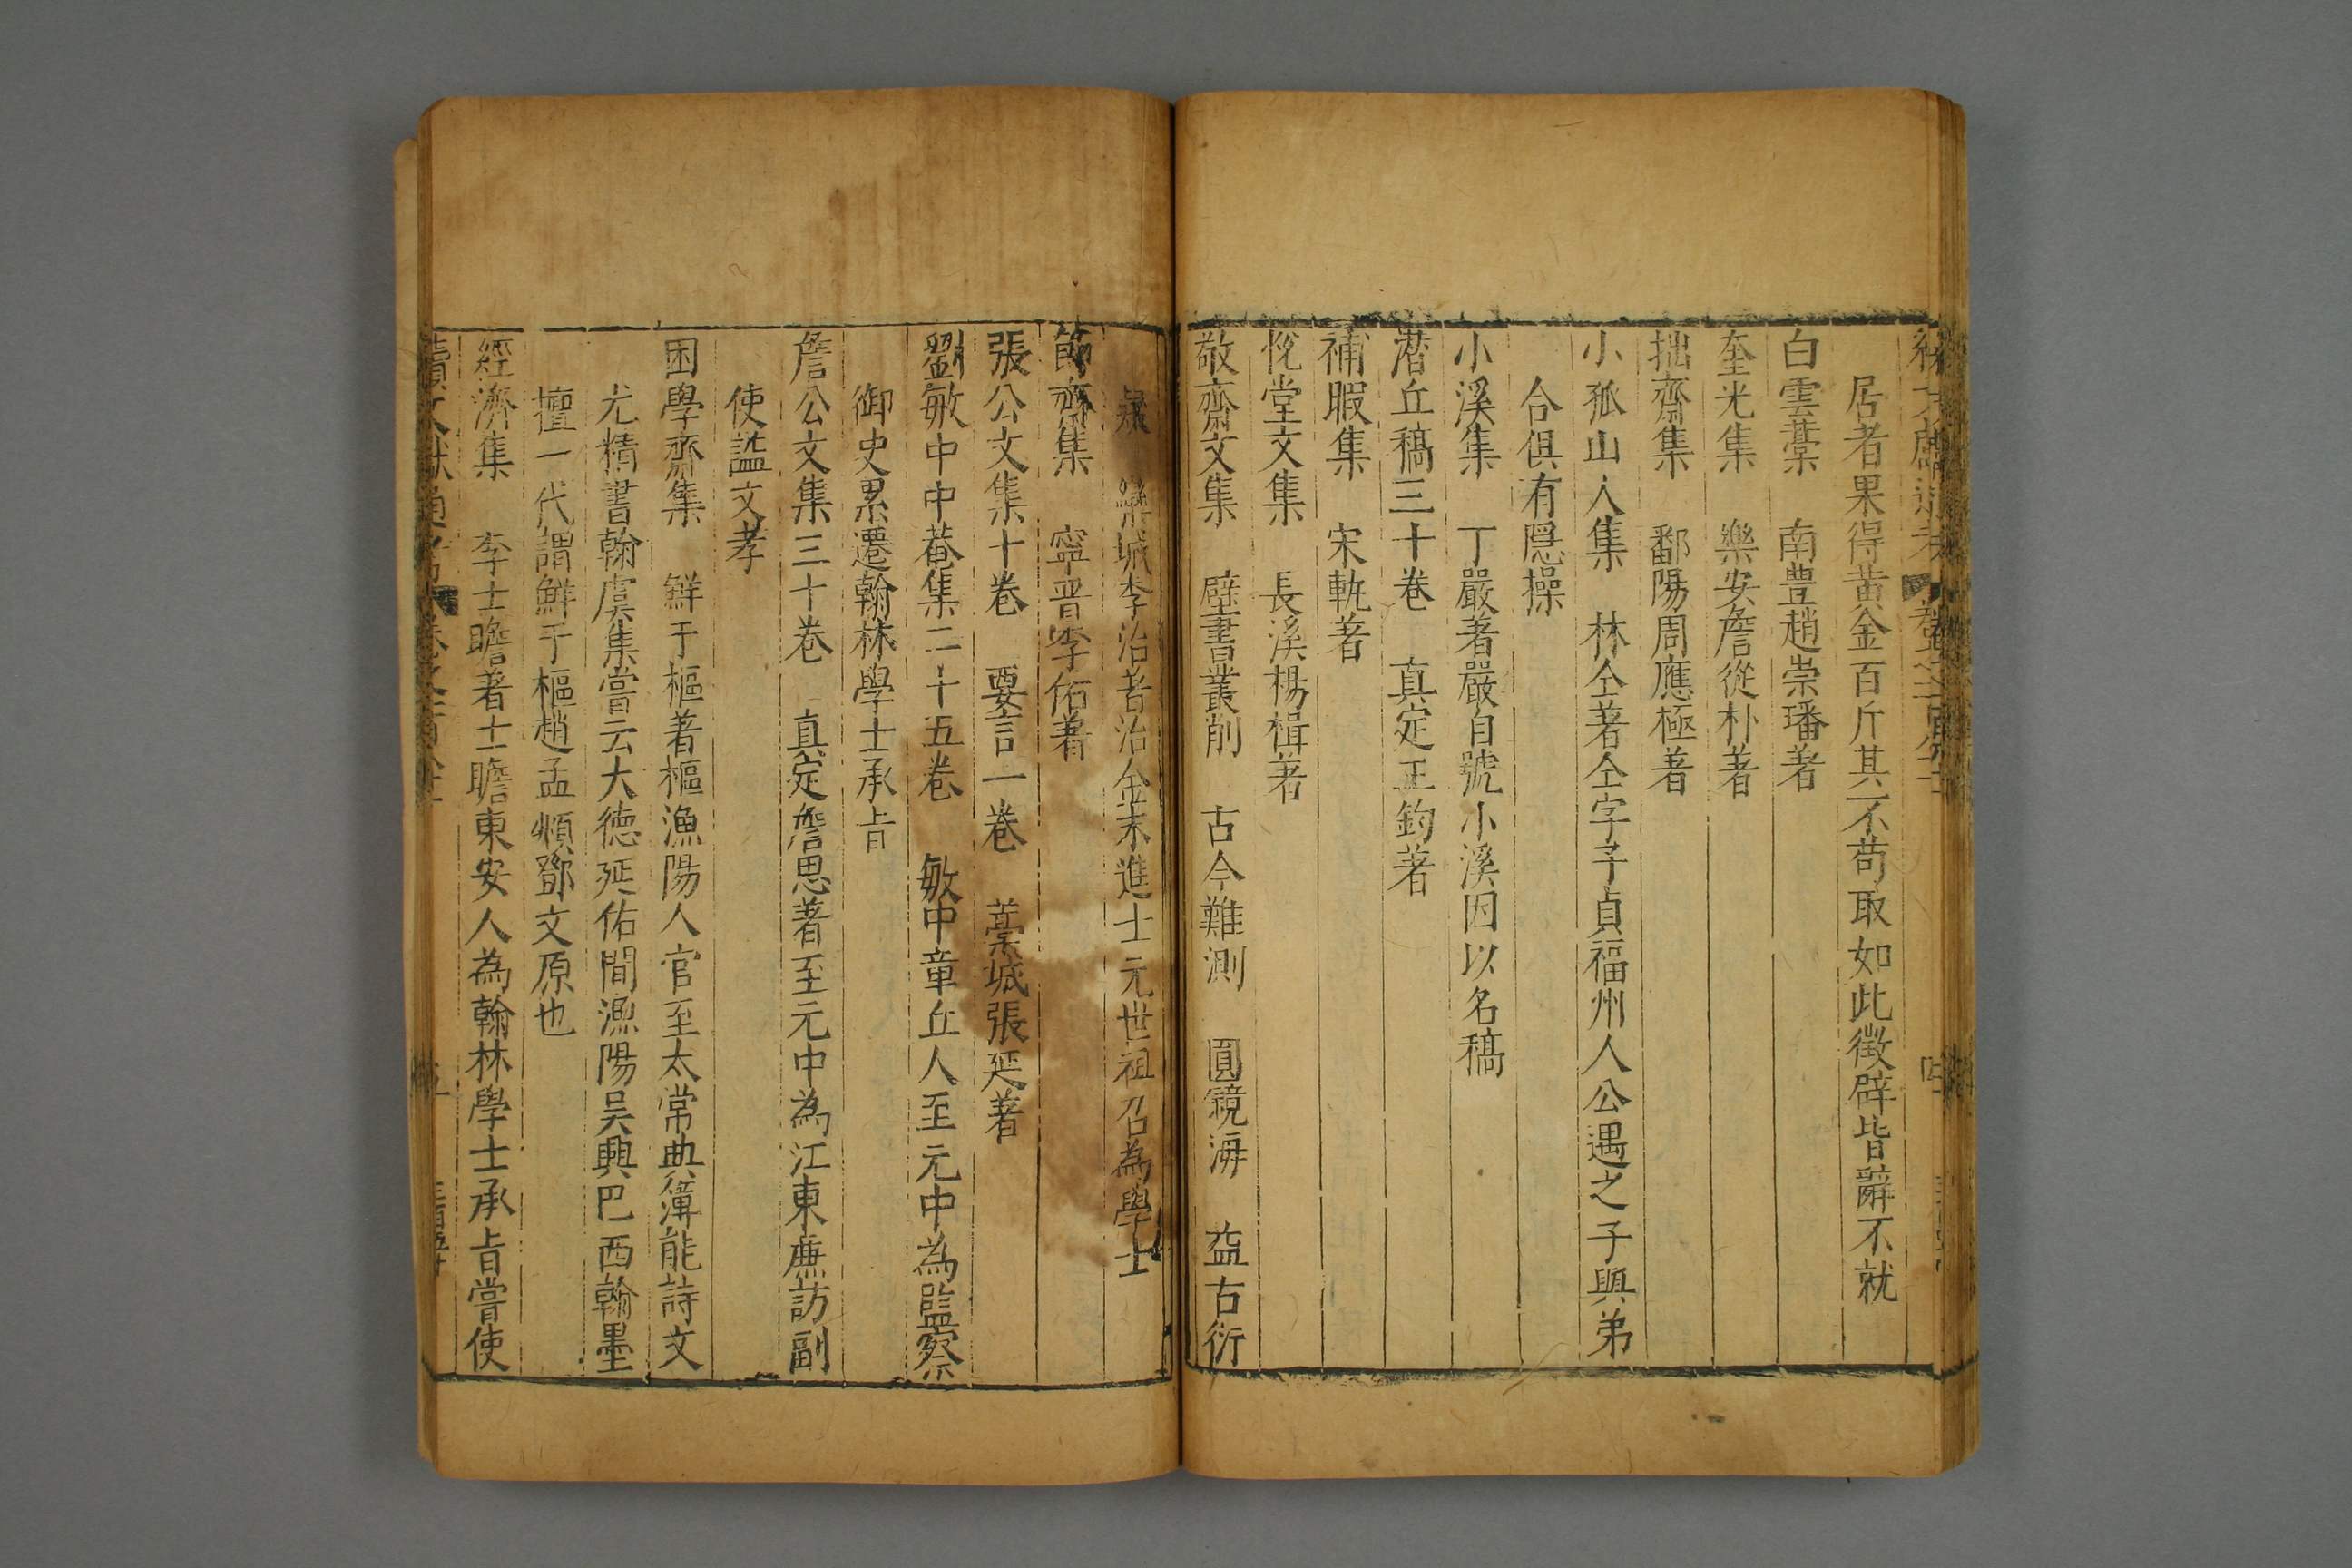 居者果得黄金百斤其不苟取如此徵辟皆辭不就
白雲藁 南豊趙崇璠著
奎光集 樂安詹從朴著
拙齋集 鄱陽周應極著
小孤山人集 林仝著仝字子貞福州人公遇之子與弟
合俱有隠操
小溪集 丁嚴著嚴自號小溪因以名稿
潜丘稿三十卷 真定王鈞著
補暇集 宋䡄著
恱堂文集 長溪楊楫著
敬齋文集 壁書叢削 古今難測 圓鏡海 益古衍
欒城李冶著冶金末進士元世祖召為學士
節齋集 寜晋李佑著
張公文集十卷 要言一卷 藁城張延著
劉敏中中菴集二十五卷 敏中章丘人至元中為監察
御史累遷翰林學士承旨
詹公文集三十卷 真定詹思著至元中為江東廉訪副
使謚文孝
困學齋集 鮮于樞著樞漁陽人官至太常典簿能詩文
尤精書翰虞集嘗云大德延佑間漁陽吴興巴西翰墨
擅一代謂鮮于樞趙孟頫鄧文原也
經濟集 李士瞻著士瞻東安人為翰林學士承旨嘗使
續文獻通考 卷之一百八十一